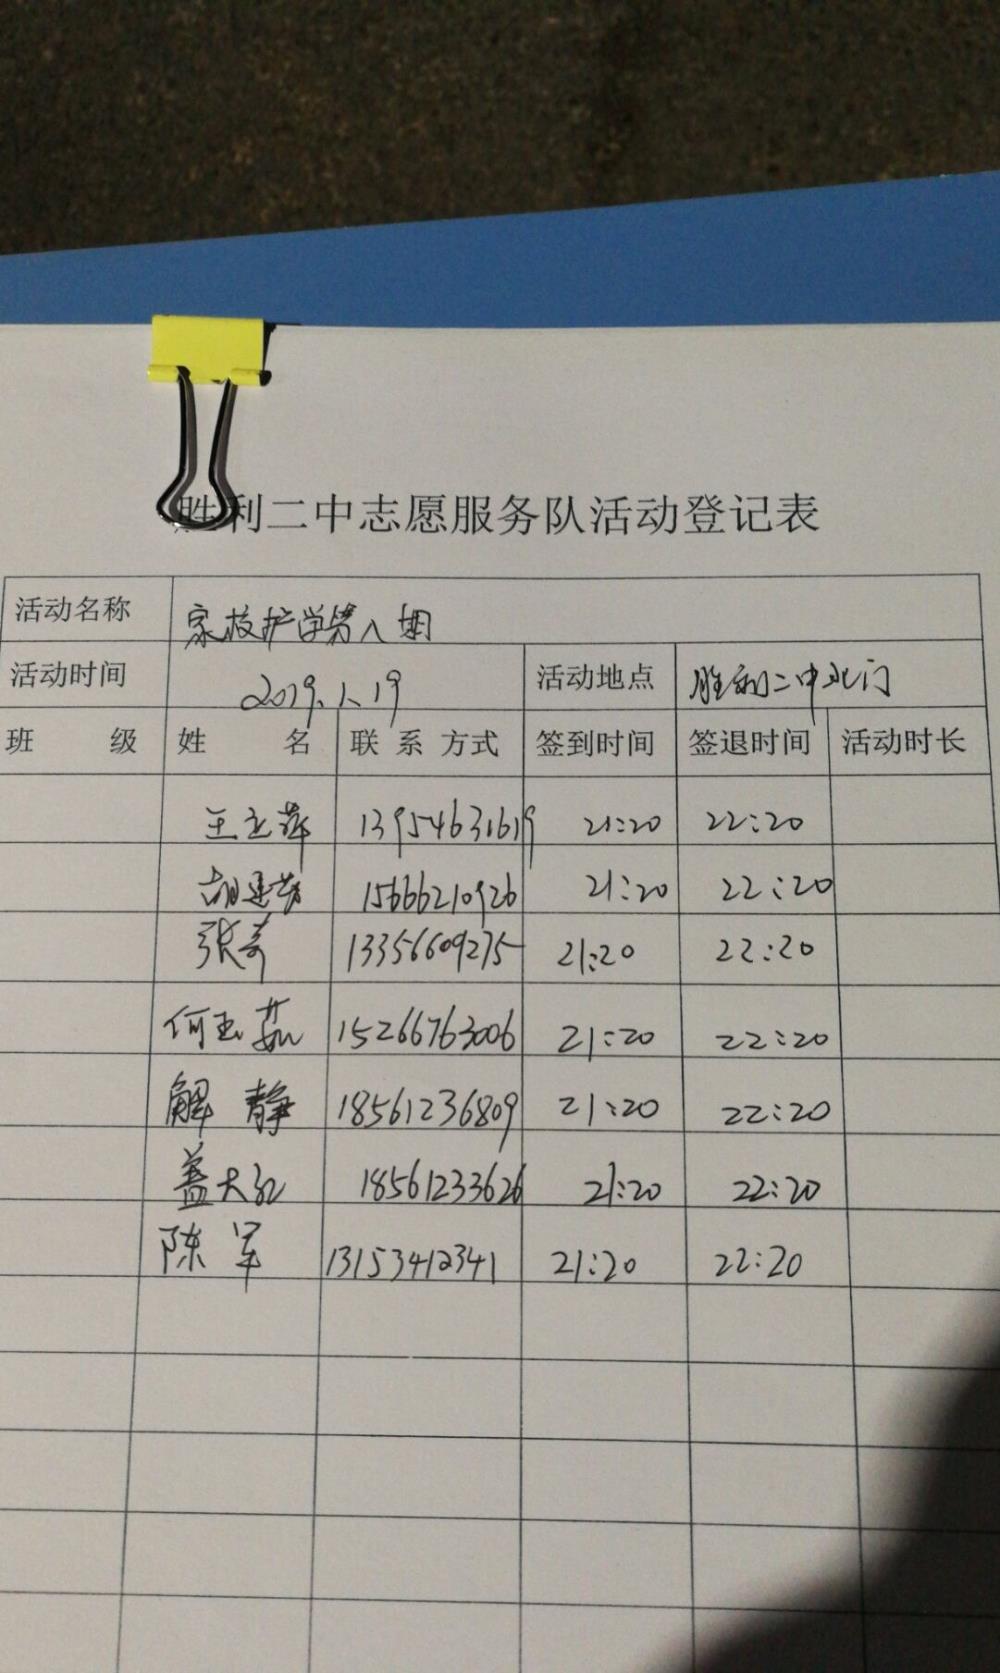 胜利二中志愿服务队活动登记表
活动名称 家校护学第八期
活动时间 2019.1.19 活动地点 胜利二中北门
班 级 姓 名 联系方式 签到时间 签退时间 活动时长
王立萍 13954631619 21:20 22:20
胡 15666210926 21:20 22:20
张奇 13356609275 21:20 22:20
何玉茹 15266763006 21:20 22:20
解静 18561236809 21:20 22:20
盖大红 18561233626 21:20 22:20
陈军 13153412341 21:20 22:20